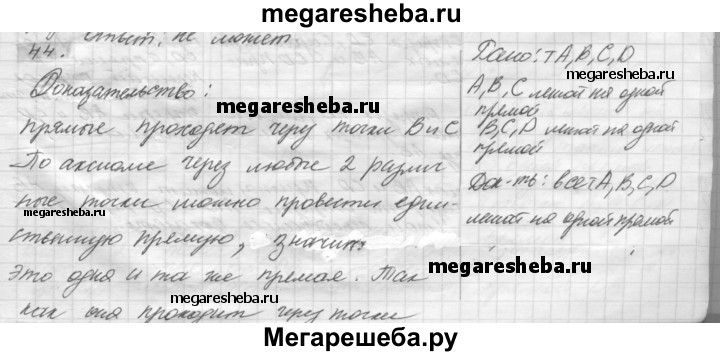 megaresheba.ru
Ответ: не может.
44.
Доказательство:
megaresheba.ru
прямые проходят через точки В и С
По аксиоме через любые 2 различ
ные точки можно провести един-
megaresheba.ru
ственную прямую, значит
это одна и та же прямая. Так
megaresheba.ru
как она проходит через точки
Дано: т A, B, C, D
A, B, C лежат на одной
прямой
megaresheba.ru
B, C, D лежат на одной
прямой
Док-ть: все т A, B, C, D
лежат на одной прямой
megaresheba.ru
Мегарешеба.ру